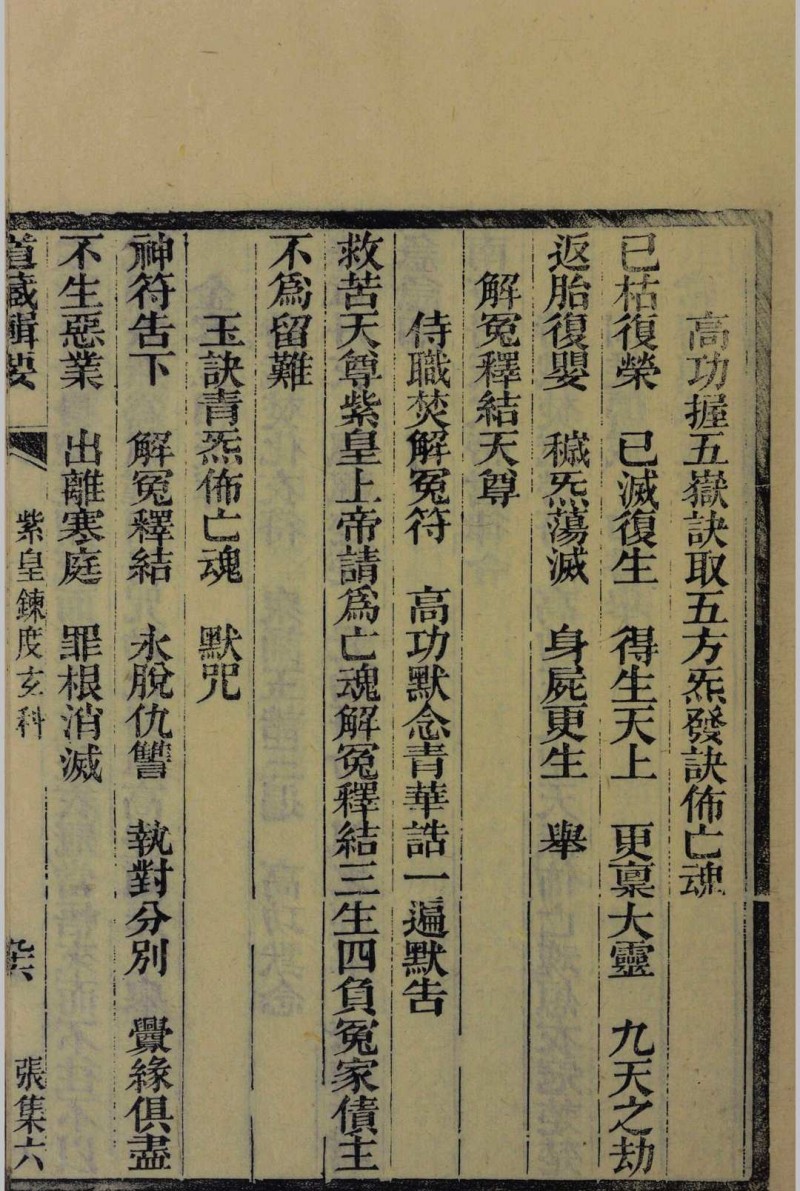 高功握五嶽訣取五方炁發訣佈亡魂
已枯復榮　已滅復生　得生天上　更稟大靈　九天之劫
返胎復嬰　穢炁蕩滅　身屍更生　舉
解冤釋結天尊
侍職焚解冤符　高功默念青華誥一遍默告
救苦天尊紫皇上帝請為亡魂解冤釋結三生四負冤家債主
不為留難
玉訣青炁佈亡魂　默咒
神符告下　解冤釋結　永脫仇讐　執對分別　釁緣俱盡
不生惡業　出離寒庭　罪根消滅
道藏輯要　紫皇鍊度玄科　張集六